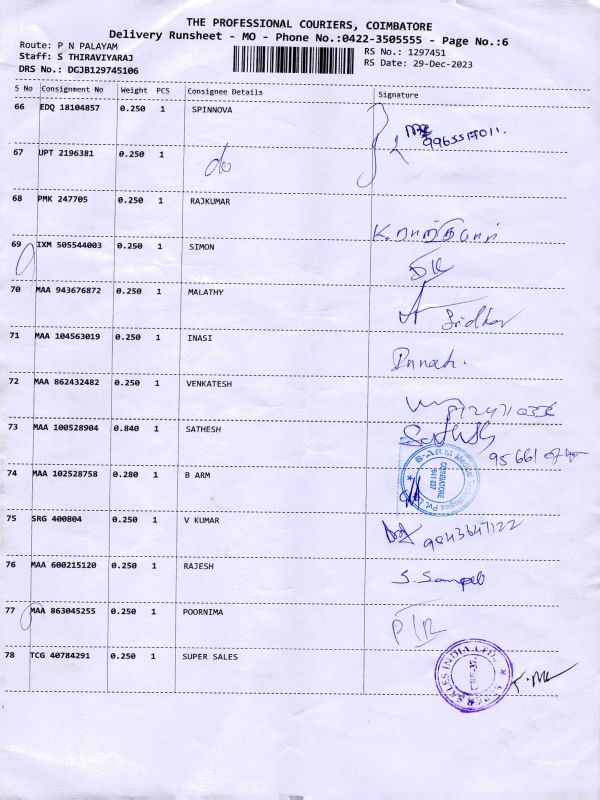 THE PROFESSIONAL COURIERS, COIMBATORE
Delivery Runsheet - MO - Phone No.:0422-3505555 - Page No.:6
Route: P N PALAYAM
RS No.: 1297451
Staff: S THIRAVIYARAJ
RS Date: 29-Dec-2023
DRS No.: DGJB129745106
S No Consignment No Weight PCS Consignee Details Signature
66 EDQ 18104857 0.250 1 SPINNOVA
67 UPT 2196381 0.250 1 do
68 PMK 247705 0.250 1 RAJKUMAR
69 IXM 505544003 0.250 1 SIMON
70 MAA 943676872 0.250 1 MALATHY Sridhar
71 MAA 104563019 0.250 1 INASI
72 MAA 862432482 0.250 1 VENKATESH
73 MAA 100528904 0.840 1 SATHESH Sathish
74 MAA 102528758 0.280 1 B ARM
B-ARM COIMBATORE 641 037
75 SRG 400804 0.250 1 V KUMAR 9043647122
76 MAA 600215120 0.250 1 RAJESH
77 MAA 863045255 0.250 1 POORNIMA
78 TCG 40784291 0.250 1 SUPER SALES
SUPER SALES INDIA LTD. CBE-37